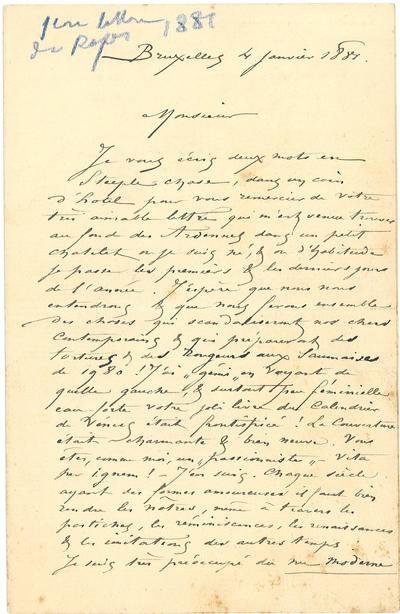 1ère lettre
de Rops 1881
Bruxelles 4 Janvier 1881.
Monsieur
Je vous écris deux mots en
Steeple chase, dans un coin
d'hotel pour vous remercier de votre
très aimable lettre qui m'est venue trouver
au fond des Ardennes dans un petit
chatelet où je suis né, & où d'habitude
je passe les premiers & les derniers jours
de l'année. J'espère que nous nous
entendrons & que nous ferons ensemble
des choses qui scandaliseront nos chers
contemporains & qui prépareront des
tortures & des rougeurs aux Saumaises
de 1980! J'ai „gémi„ en voyant de
quelle gauche, & surtout peu féminielle
eau forte votre joli livre du Calendrier
de Vénus était frontispicé! La Couverture
était charmante & bien neuve. Vous
êtes, comme moi, un „passionniste„ – vita
per ignem! – J'en suis. Chaque siècle
ayant des formes amoureuses il faut bien
rendre les nôtres, même à travers les
postiches, les réminiscences, les renaissances
& les imitations des autres temps
Je suis très préoccupé du nu moderne